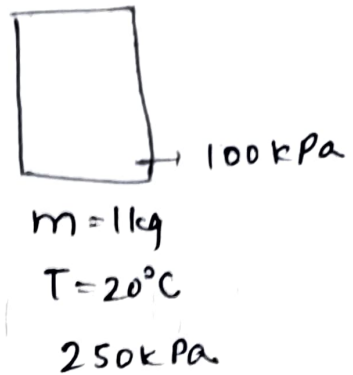 100kPa
m=1kg
T=20°C
250kPa